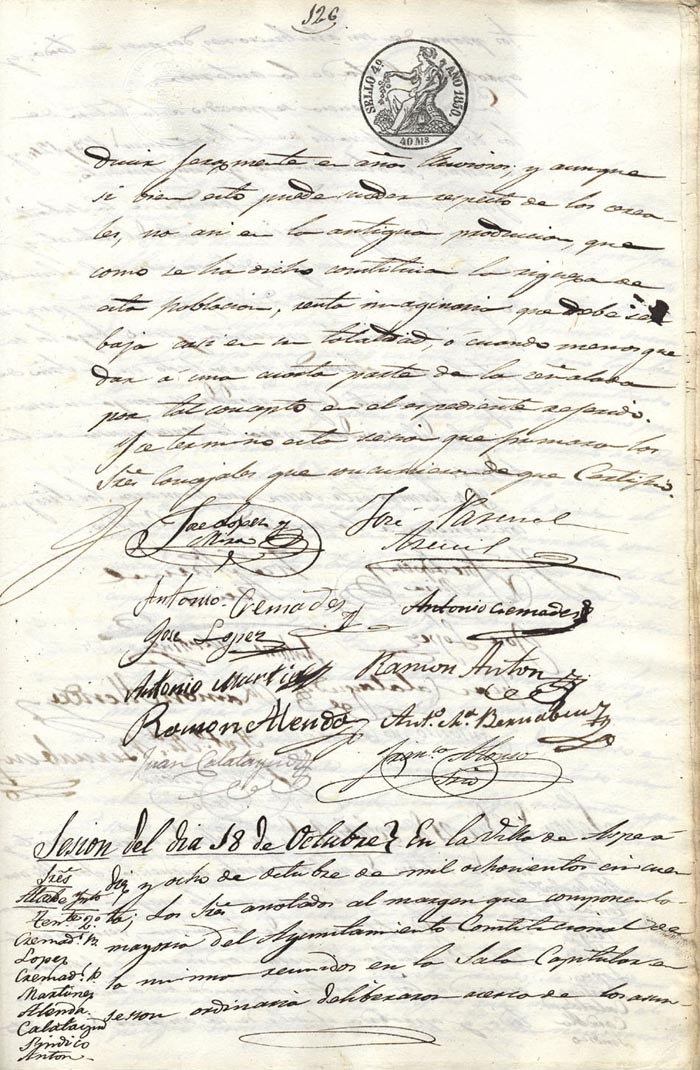 126
SELLO 4º AÑO 1850.
40 Ms
ducir feraxmente en años lluviosos, y aunque
si bien esto puede suceder respecto de los cerea
les, no asi en la antigua produccion, que
como se ha dicho constituia la riqueza de
esta poblacion, renta imaginaria que debe ser
baja casi en su totalidad, ó cuando menos que
dar á una cuarta parte de la señalada
por tal concepto en el espediente referido.
Y se termino esta sesion que firmaron los
Sres Concejales que concurrieron de que Certifico.
Jose Lopez y
Mira
José Pascual
Antonio Cremades
Antonio Cremades
Jose Lopez
Antonio Martinez
Ramon Anton
Ramon Alenda
Anto Ma Bernabeu
Juan Calatayud
Franco Alonso
Srio
Sesion del dia 18 de Octubre
En la Villa de Aspe á
diez y ocho de octubre de mil ochocientos cincuen
ta; los Sres anotados al margen que componen la
mayoria del Ayuntamiento Constitucional de
la misma reunidos en la Sala Capitular en
sesion ordinaria deliberaron acerca de los asun
Sres
Alcalde Pnte
Tente 2º
Cremads B.
Lopez
Cremads P.
Martinez
Alenda.
Calatayud
Sindico
Anton